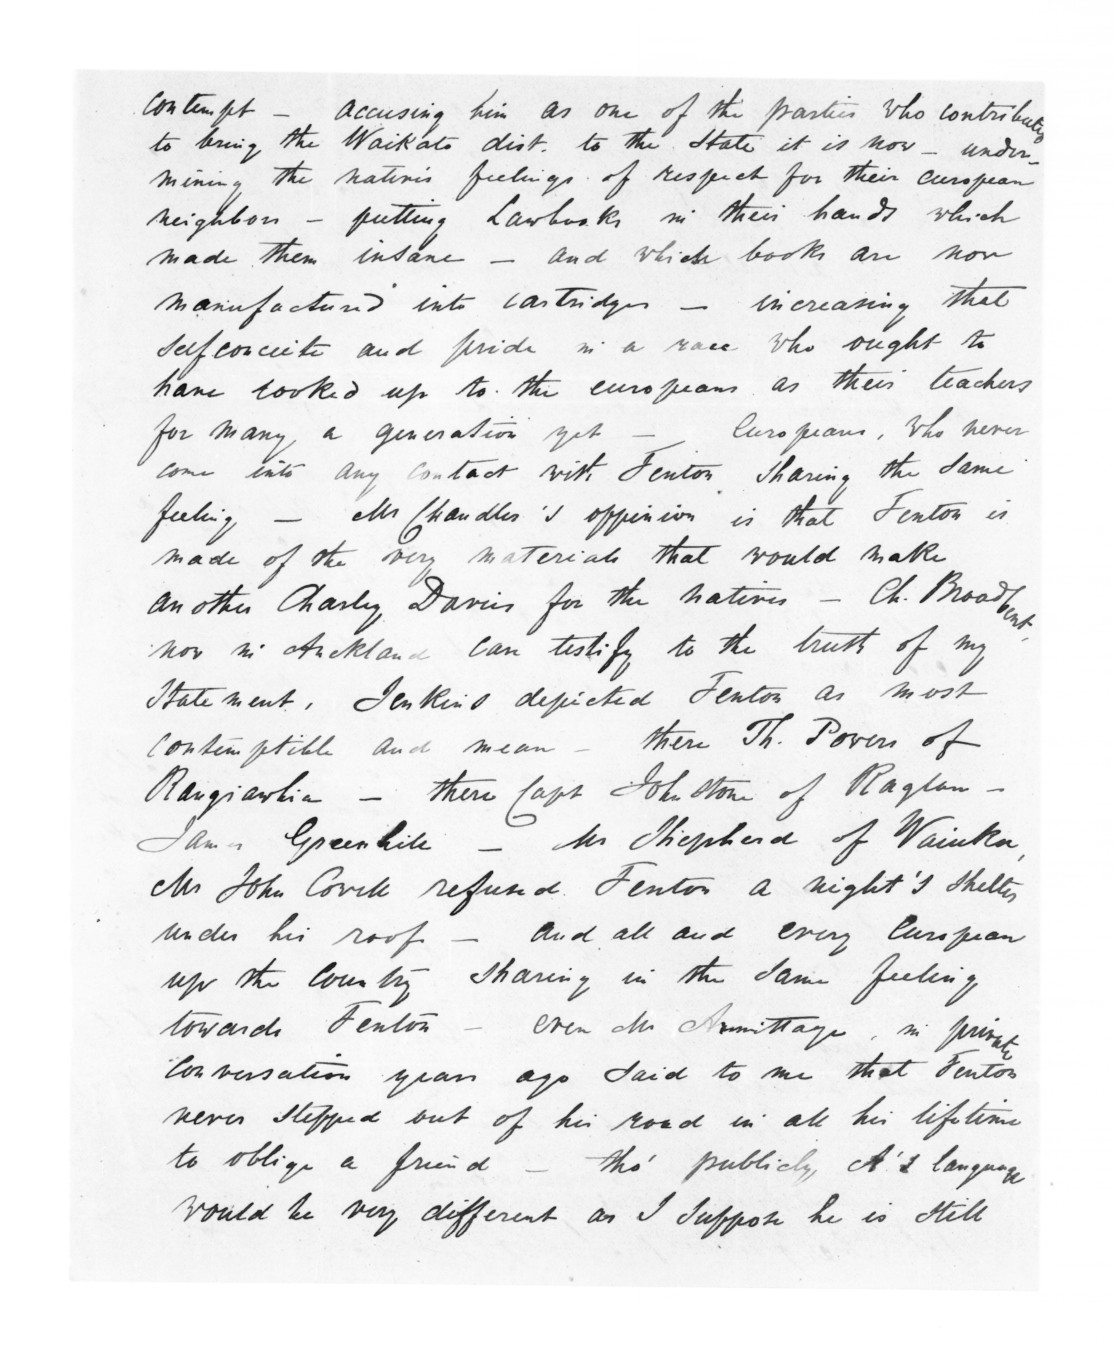 contempt – accusing him as one of the parties who contributed
to bring the Waikato dist. to the State it is now – under-
mining the native's feelings of respect for their european
neighbors – putting Lawbooks in their hands which
made them insane – and which books are now
manufactured into cartridges – increasing that
selfconceite and pride in a race who ought to
have looked up to the europeans as their teachers
for many a generation yet – Europeans, who never
come into any contact with Fenton sharing the same
feeling – Mr Chandler's oppinion is that Fenton is
made of the very materials that would make
another Charley Davis for the natives – Ch. Broadbent,
now in Auckland can testify to the truth of my
Statement. Jenkins depicted Fenton as most
contemptible and mean – there Th. Powers of
Rangiawhia – there Capt Johnstone of Raglan –
James Greenhill – Mr Shepherd of Waiuku,
Mr John Covell refused Fenton a night's shelter
under his roof – and all and every European
up the Country sharing in the same feeling
towards Fenton – even Mr Armittage, in private
Conversation years ago said to me that Fenton
never stepped out of his road in all his lifetime
to oblige a friend – tho' publicly A's language
would be very different as I suppose he is still